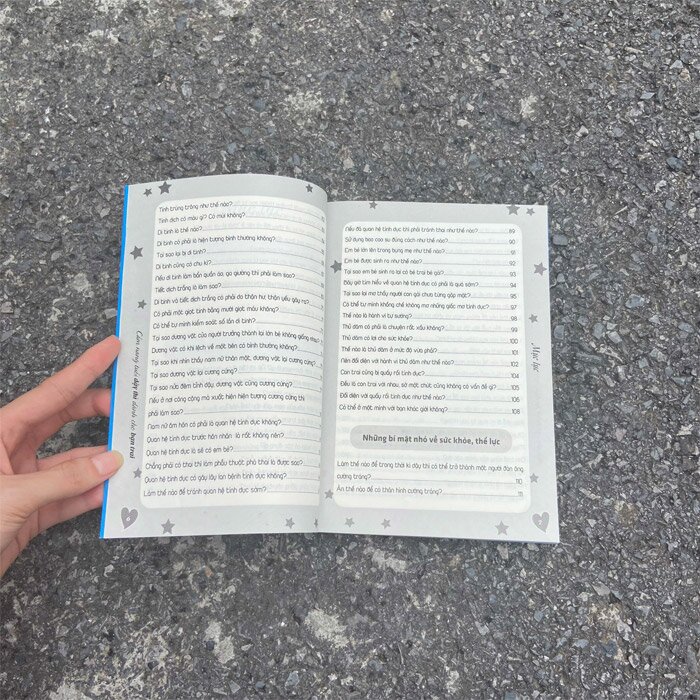 Tinh trùng trông như thế nào?
Tinh dịch có màu gì? Có mùi không?
Di tinh là thế nào?
Di tinh có phải là hiện tượng bình thường không?
Tại sao lại bị di tinh?
Di tinh cũng có chu kì?
Nếu di tinh làm bẩn quần áo, ga giường thì phải làm sao?
Tiết dịch trắng là làm sao?
Di tinh và tiết dịch trắng có phải do thận hư thận yếu gây ra?
Có phải một giọt tinh bằng mười giọt máu không?
Có thể tự mình kiểm soát số lần di tinh?
Tại sao dương vật của người trưởng thành lại lớn bé không giống nhau?
Dương vật có khi lệch về một bên có bình thường không?
Tại sao khi nhìn thấy nam nữ thân mật, dương vật lại cương cứng?
Tại sao dương vật lại cương cứng?
Tại sao nửa đêm tỉnh dậy, dương vật cũng cương cứng?
Nếu ở nơi công cộng mà xuất hiện hiện tượng cương cứng thì
phải làm sao?
Nam nữ âm hôn có phải là quan hệ tình dục không?
Quan hệ tình dục trước hôn nhân là rất không nên?
Quan hệ tình dục là sẽ có em bé?
Chẳng phải có thai thì làm phẫu thuật phá thai là được sao?
Quan hệ tình dục có gây lây lan bệnh tình dục không?
Làm thế nào để tránh quan hệ tình dục sớm?
Cẩm nang tuổi dậy thì dành cho bạn trai
Nếu đã quan hệ tình dục thì phải tránh thai như thế nào? 89
Sử dụng bao cao su đúng cách như thế nào? 90
Em bé lớn lên trong bụng mẹ như thế nào? 91
Em bé được sinh ra như thế nào? 92
Tại sao em bé sinh ra lại có bé trai bé gái? 93
Bây giờ tìm hiểu về quan hệ tình dục có phải là quá sớm? 94
Tại sao lại mơ thấy người con gái chưa từng gặp mặt? 95
Có thể tự mình khống chế không mơ những giấc mơ tình dục? 97
Thế nào là hành vi tự sướng? 98
Thủ dâm có phải là chuyện rất xấu không? 99
Thủ dâm có lợi cho sức khỏe? 100
Thế nào là thủ dâm ở mức độ vừa phải? 101
Nên đối diện với hành vi thủ dâm như thế nào? 102
Con trai cũng bị quấy rối tình dục? 104
Đều là con trai với nhau, sờ mật chút cũng không có vấn đề gì? 105
Đối diện với quấy rối tình dục như thế nào? 106
Có thể ở một mình với bạn khác giới không? 108
Những bí mật nhỏ về sức khỏe, thể lực
Làm thế nào để trong thời kì dậy thì có thể trở thành một người đàn ông
cường tráng? 110
Ăn thế nào để có thân hình cường tráng? 111
Mục lục